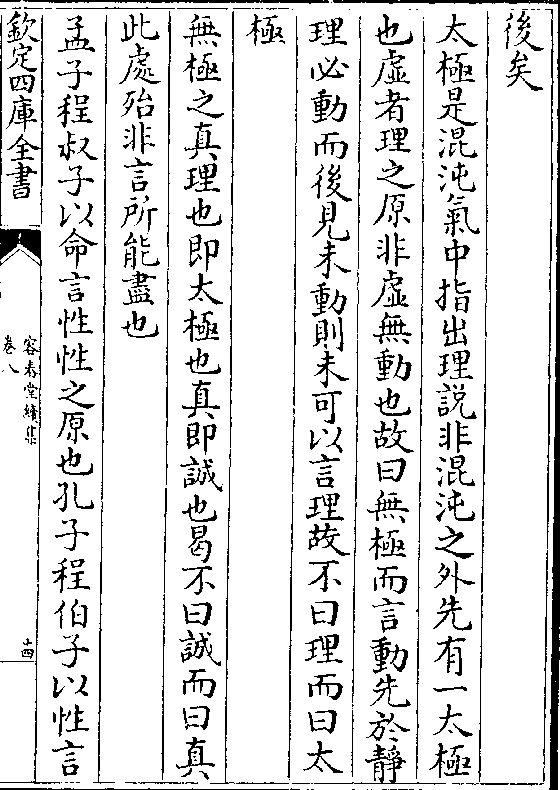 後矣
太極是混沌氣中指出理説非混沌之外先有一太極
也虛者理之原非虛無動也故曰無極而言動先於靜
理必動而後見未動則未可以言理故不曰理而曰太
極
無極之真理也即太極也真即誠也曷不曰誠而曰真
此處殆非言所能盡也
孟子程叔子以命言性性之原也孔子程伯子以性言
欽定四庫全書
容春堂續集
卷八
十四